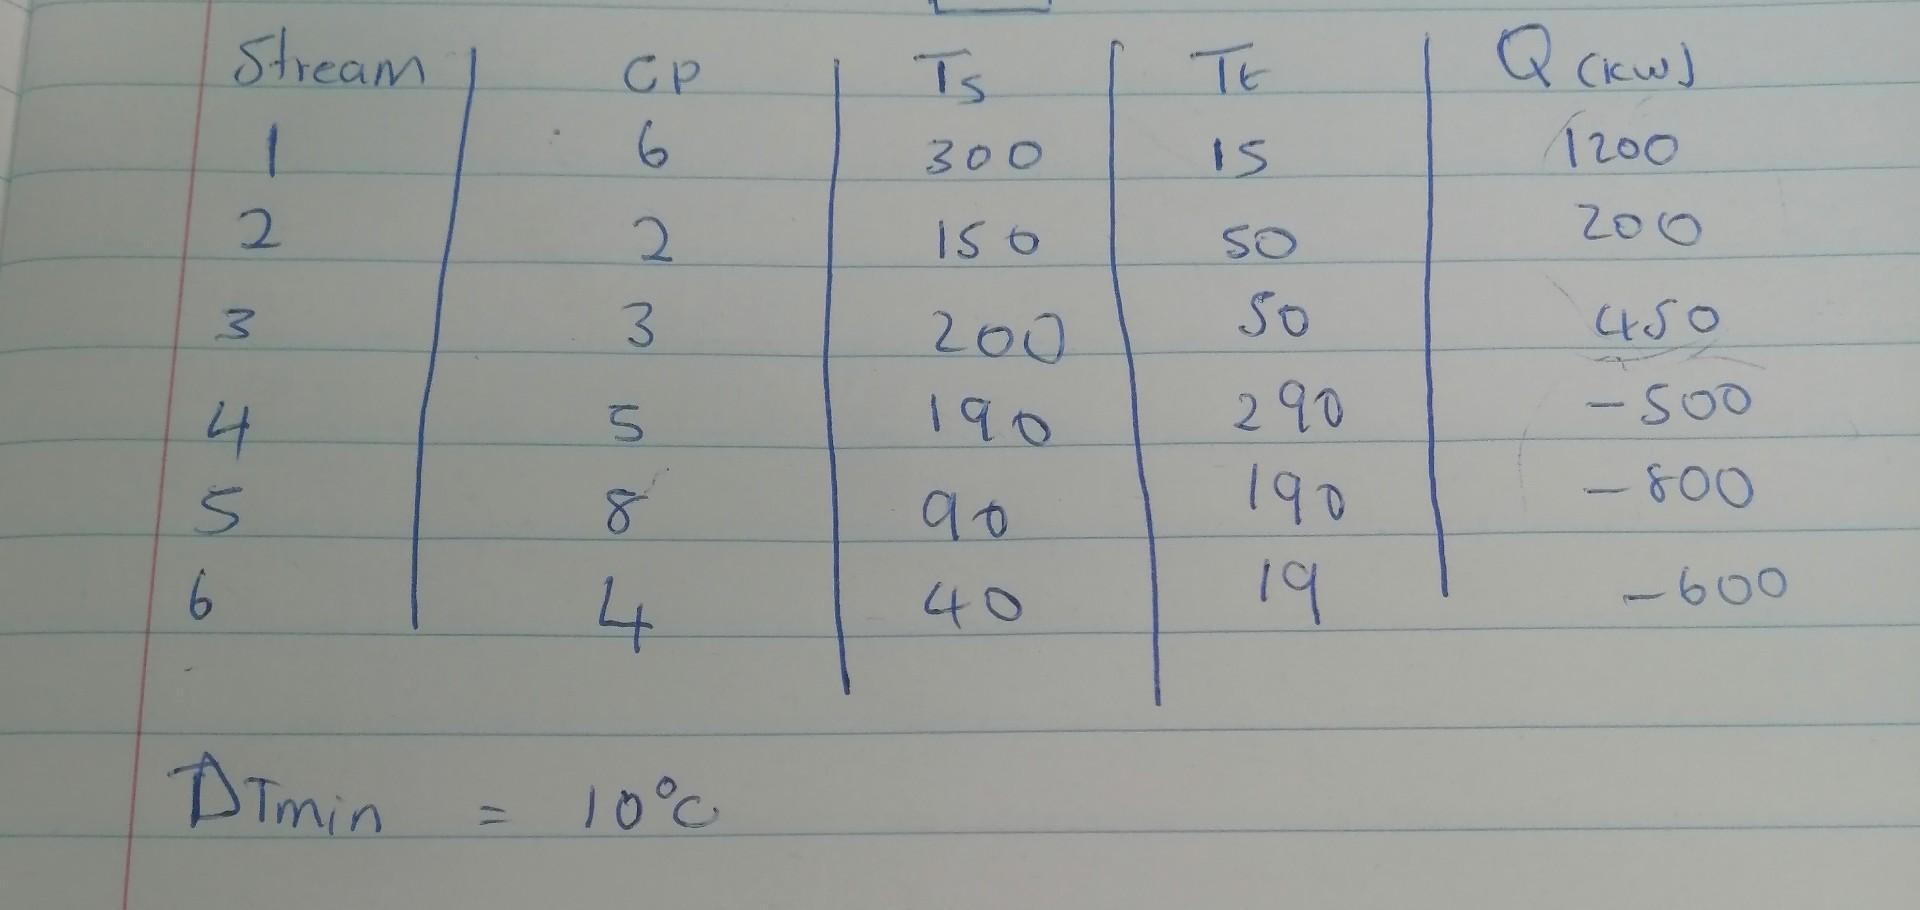 Stream CP Ts Tt Q (kW)
1 6 300 15 1200
2 2 150 50 200
3 3 200 50 450
4 5 190 290 -500
5 8 90 190 -800
6 4 40 19 -600
ΔTmin = 10°C